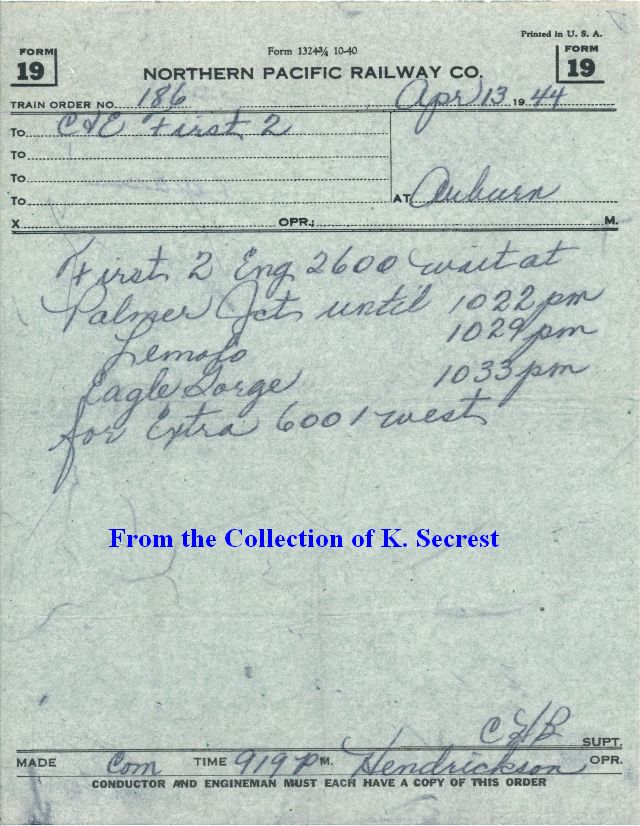 Printed in U. S. A.
FORM 19
Form 1324¾ 10-40
FORM 19
NORTHERN PACIFIC RAILWAY CO.
TRAIN ORDER NO. 186 Apr 13 1944
To C&E First 2
To
To
To AT Auburn
X OPR.; M.
First 2 Eng 2600 wait at
Palmer Jct until 1022 pm
Lemolo 1029 pm
Eagle Gorge 1033 pm
for Extra 6001 west
From the Collection of K. Secrest
CHB SUPT.
MADE Com TIME 919 P M. Hendrickson OPR.
CONDUCTOR AND ENGINEMAN MUST EACH HAVE A COPY OF THIS ORDER